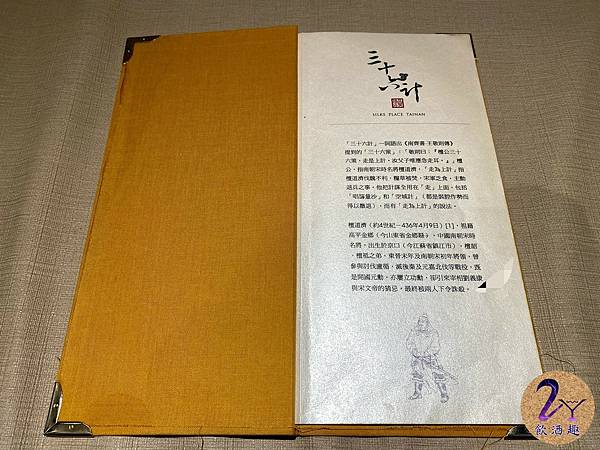 三十六計
SILKS PLACE TAINAN
「三十六計」一詞語出《南齊書·王敬則傳》
提到的「三十六策」:「敬則曰:『檀公三十
六策,走是上計,汝父子唯應急走耳。』」檀
公,指南朝宋時名將檀道濟,「走為上計」指
檀道濟伐魏不利,糧草被焚,宋軍乏食,主動
退兵之事。他把計謀全用在「走」上面,包括
「唱籌量沙」和「空城計」(都是裝腔作勢而
得以撤退),而有「走為上計」的說法。
檀道濟(約4世紀-436年4月9日)[1],祖籍
高平金鄉(今山東省金鄉縣),中國南朝宋時
名將,出生於京口(今江蘇省鎮江市),檀韶
、檀祗之弟,東晉末年及南朝宋初年將領,曾
參與討伐盧循、滅後秦及元嘉北伐等戰役,既
是開國元勳,亦屢立功勳,卻引來宰相劉義康
與宋文帝的猜忌,最終被兩人下令誅殺。
2Y
飲酒趣